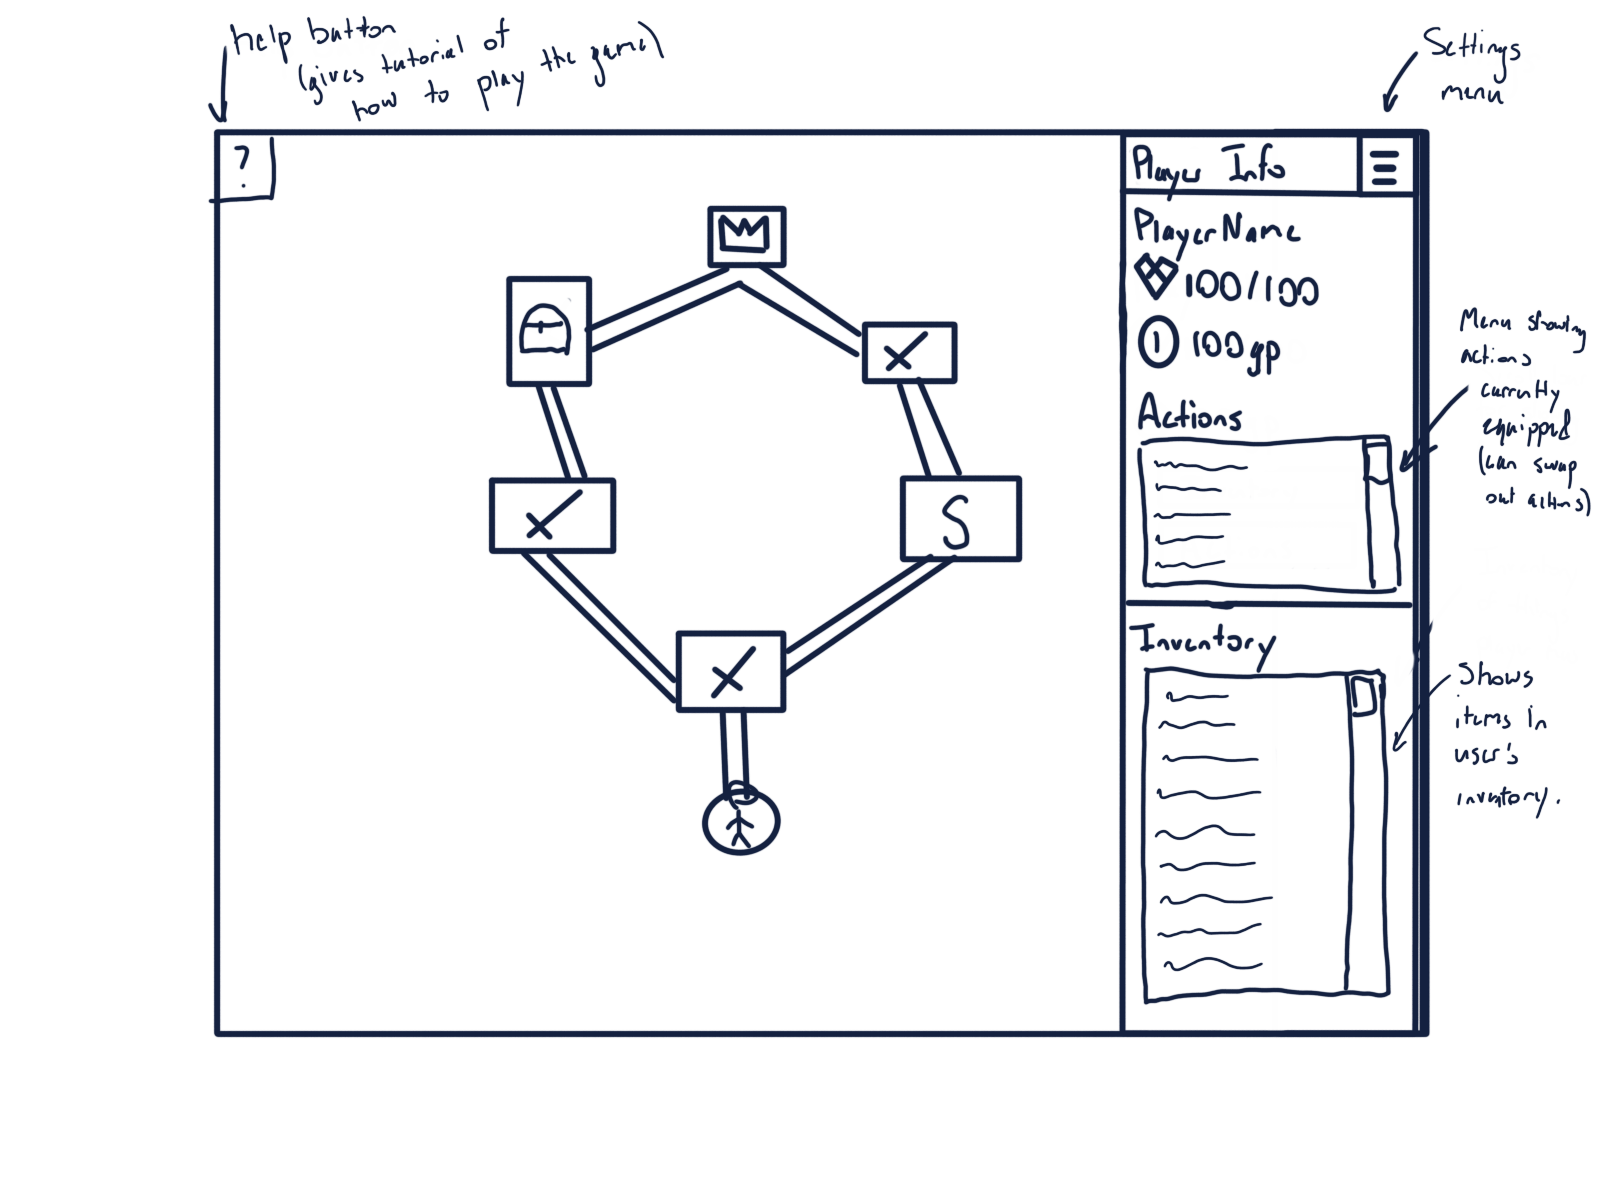 help button
(gives tutorial of
how to play the game)
Settings
menu
?
Player Info
PlayerName
100/100
1 100gp
Actions
Menu showing
actions
currently
equipped
(can swap
out actions)
S
Inventory
Shows
items in
user's
inventory.